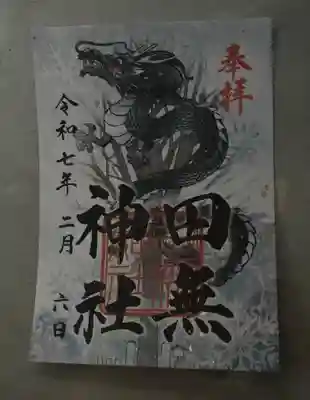 奉拝
田無
神社
令和七年 二月 六日